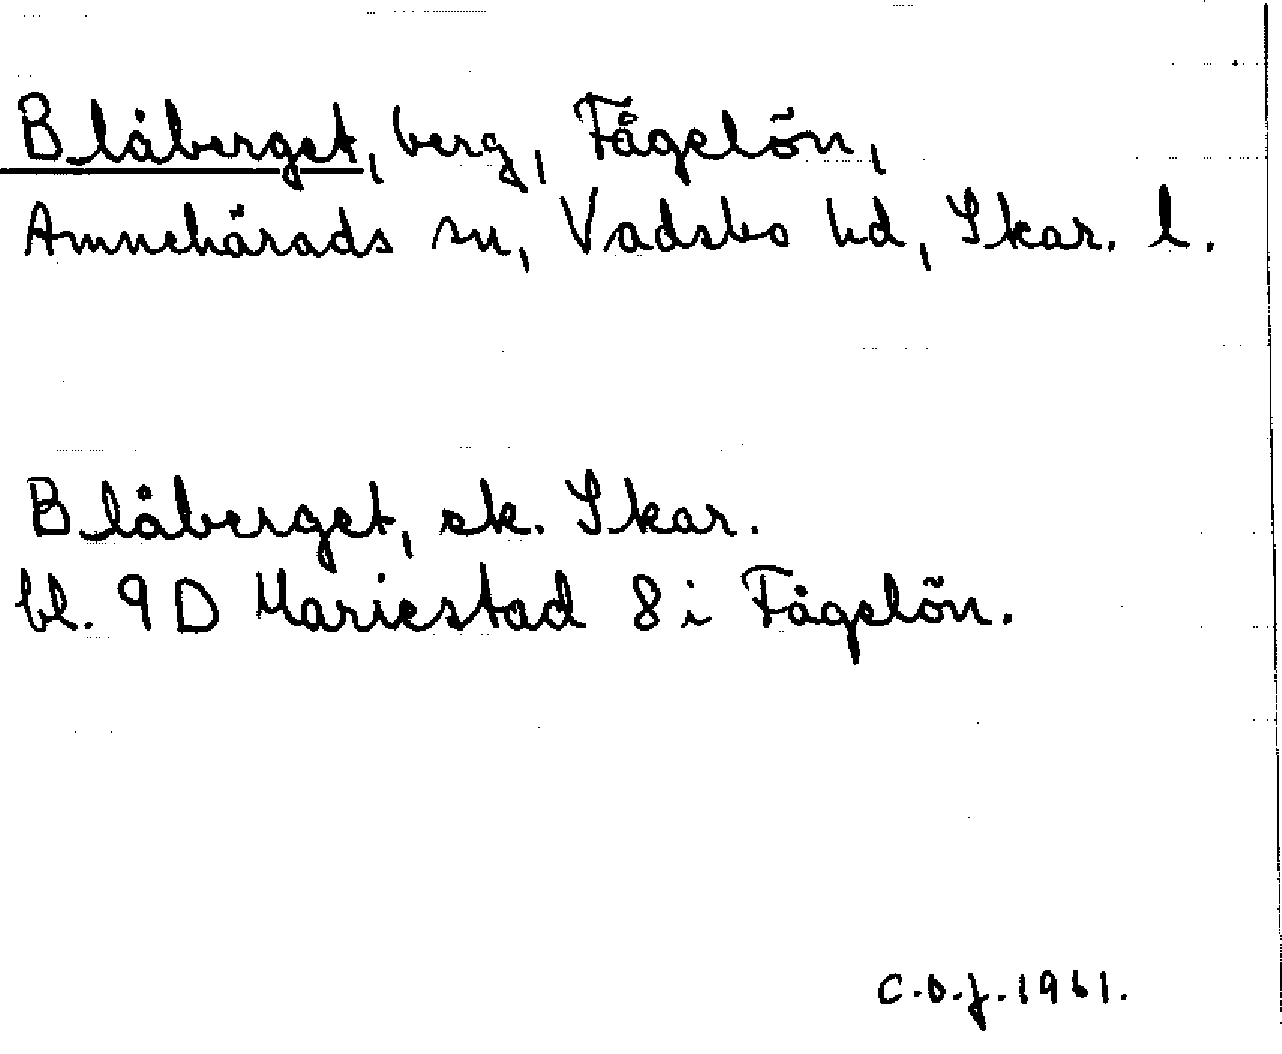 Blåberget, berg, Fågelön,
Amnehärads sn, Vadsbo hd, Skar. l.
Blåberget, ek. Skar.
bl. 9D Mariestad 8i Fågelön.
C.O.J. 1961.